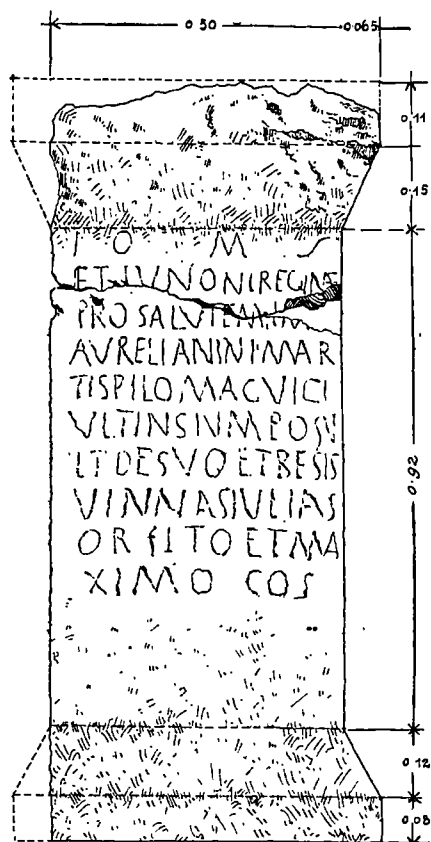 0 50 0.065
0.11
0.15
I O M
ET IVNONI REGINE
PRO SALVTE
AVRELIANINIMAR
TISPILOMACVICI
VLTINSIVMPOSV
IT DE SVO ET BESIS
VINNASIVLIAS
ORFITO ET MA
XIMO COS
0.92
0.12
0.08